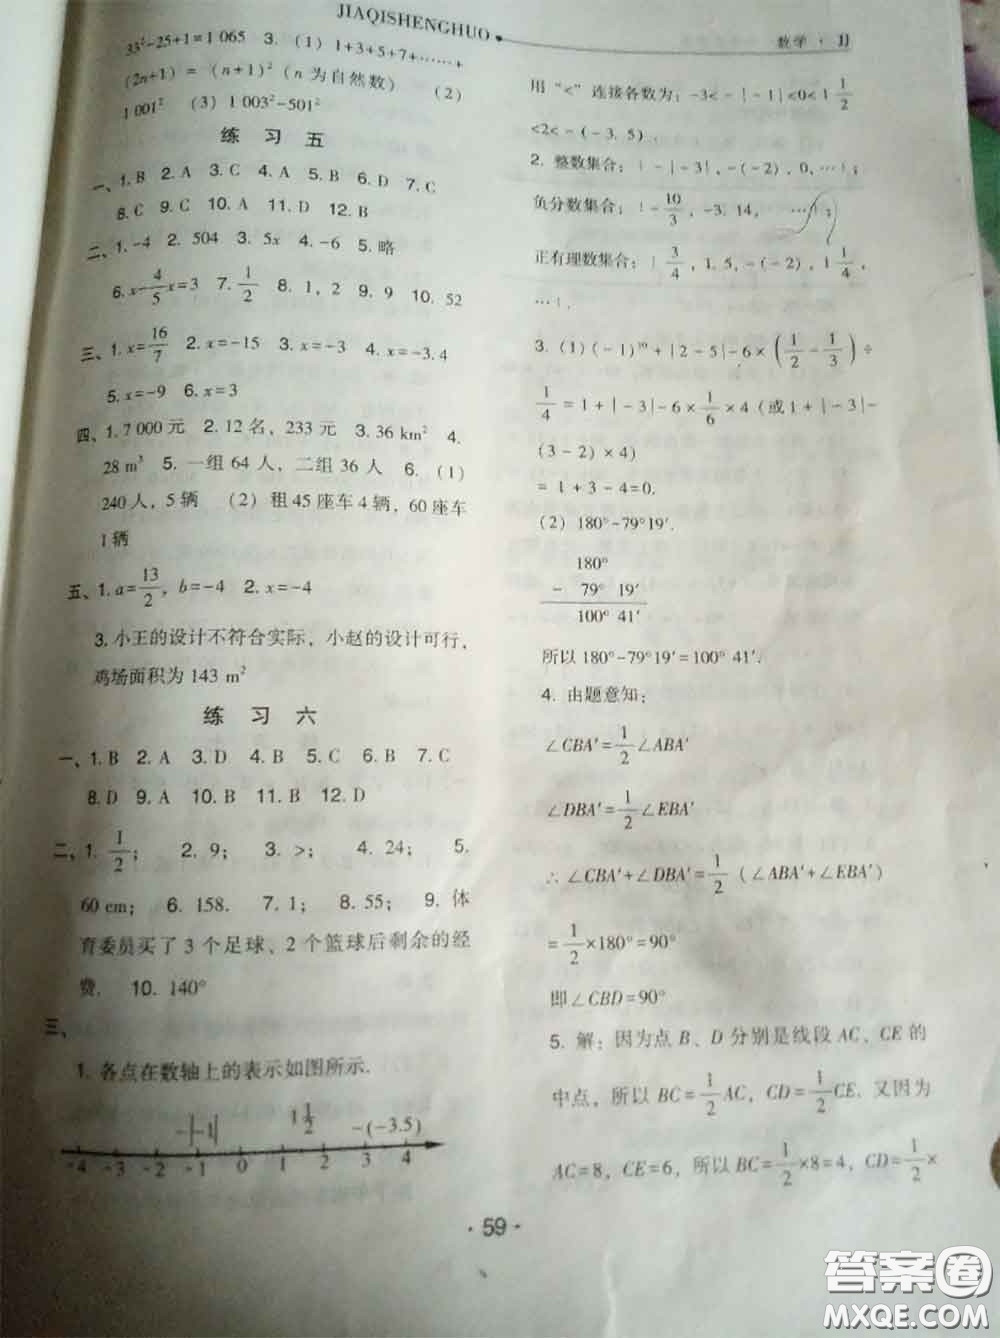 JIAQISHENGHUO
数学 · JJ
33²-25+1=1 065 3. (1) 1+3+5+7+……+
(2n+1) = (n+1)² (n 为自然数) (2)
1 001² (3) 1 003²-501²
练 习 五
一、1. B 2. A 3. C 4. A 5. B 6. D 7. C
8. C 9. C 10. A 11. D 12. B
二、1. -4 2. 504 3. 5x 4. -6 5. 略
6. x-4/5x=3 7. 1/2 8. 1, 2 9. 9 10. 52
三、1. x=16/7 2. x=-15 3. x=-3 4. x=-3. 4
5. x=-9 6. x=3
四、1. 7 000 元 2. 12 名, 233 元 3. 36 km² 4.
28 m³ 5. 一组 64 人, 二组 36 人 6. (1)
240 人, 5 辆 (2) 租 45 座车 4 辆, 60 座车
1 辆
五、1. a=13/2, b=-4 2. x=-4
3. 小王的设计不符合实际, 小赵的设计可行,
鸡场面积为 143 m²
练 习 六
一、1. B 2. A 3. D 4. B 5. C 6. B 7. C
8. D 9. A 10. B 11. B 12. D
二、1. 1/2; 2. 9; 3. >; 4. 24; 5.
60 cm; 6. 158. 7. 1; 8. 55; 9. 体
育委员买了 3 个足球、2 个篮球后剩余的经
费. 10. 140°
三、
1. 各点在数轴上的表示如图所示.
-|-1| 1 1/2 -(-3.5)
-4 -3 -2 -1 0 1 2 3 4
用 "<" 连接各数为: -3<-|-1|<0<1 1/2
<2<-(-3. 5).
2. 整数集合: {-|-3|, -(-2), 0, …};
负分数集合: {-10/3, -3. 14, …};
正有理数集合: {3/4, 1. 5, -(-2), 1 1/4,
…}.
3. (1) (-1)¹⁰+|2-5|-6×(1/2-1/3)÷
1/4=1+|-3|-6×1/6×4 (或1+|-3|-
(3-2)×4)
=1+3-4=0.
(2) 180°-79°19′.
180°
- 79° 19′
100° 41′
所以 180°-79°19′=100° 41′.
4. 由题意知:
∠CBA′=1/2∠ABA′
∠DBA′=1/2∠EBA′
∴ ∠CBA′+∠DBA′=1/2 (∠ABA′+∠EBA′)
=1/2×180°=90°
即∠CBD=90°
5. 解: 因为点 B、D 分别是线段 AC、CE 的
中点, 所以 BC=1/2AC, CD=1/2CE. 又因为
AC=8, CE=6, 所以 BC=1/2×8=4, CD=1/2×
· 59 ·
答案圈
MXQE.COM